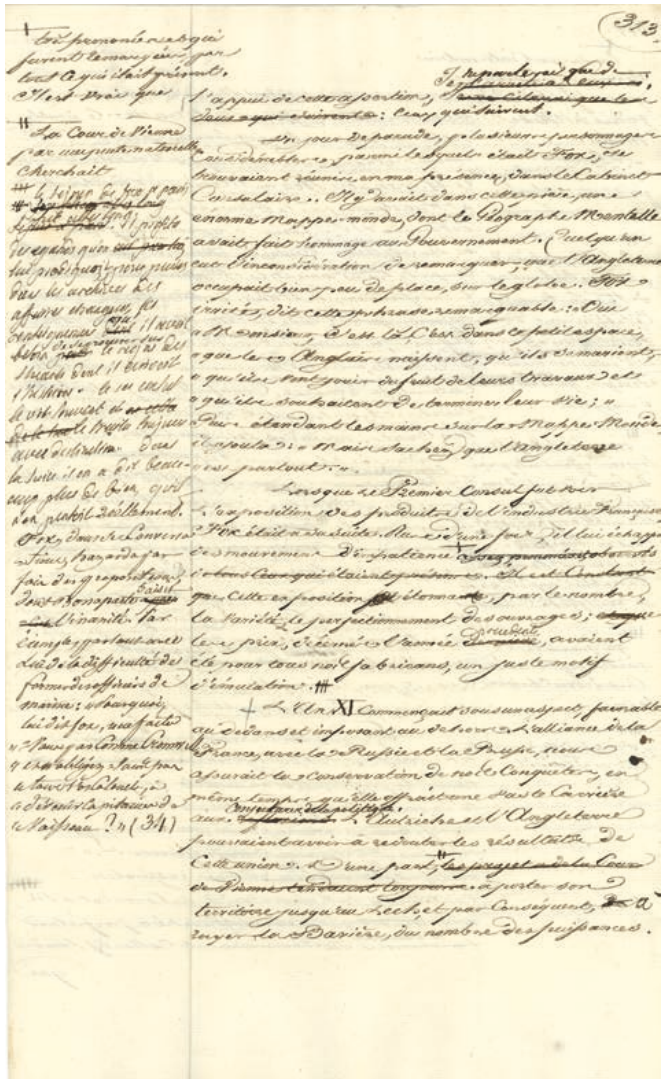 313
très prononcé et qui
furent remarqués par
tout ce qui était présent.
Il est vrai que
La Cour de Vienne
par une pente naturelle
cherchait
le séjour de fox à paris
il profita
des égards qu'on
lui prodiguoit pour puiser
dans les archives des
affaires étrangères, les
renseignemens dont il avoit
besoin le règne des
Stuarts dont il écrivoit
l'histoire. le 1er consul
le vit souvent et
le traita toujours
avec distinction. dans
la suite il en a dit beau-
coup plus de bien, qu'il
n'en pensoit réellement.
Fox, dans la Conversa-
tion, hazarda par
fois des propositions,
dont Bonaparte saisit
l'inanité. Par
exemple, parlant avec
lui de la difficulté de
former des officiers de
marine: « Pourquoi,
lui dit fox, ne faites
« Vous pas Comme Cromwel
« tour un Colonel, à
« devenir Capitaine de
« Vaisseau? » (34)
Je ne parlerai que de
l'appui de cette assertion,
ceux qui suivent.
Un jour de parade, plusieurs personnages
Considérables, parmi lesquels était Fox, se
trouvaient réunis, en ma présence, dans le Cabinet
Consulaire. Il y avait dans cette pièce, une
énorme Mappe-monde, dont le Géographe Mentelle
avait fait hommage au Gouvernement. Quelqu'un
eut l'inconsidération de remarquer, que l'Angleterre
occupait bien peu de place, sur le globe. Fox
irrité, dit cette phrase remarquable: « Oui
« Monsieur, c'est là C'est dans ce petit espace,
« que les Anglais naissent, qu'ils se marient,
« qu'ils vont jouir du fruit de leurs travaux et
« qu'ils souhaitent de terminer leur vie; »
Puis étendant les mains sur la Mappe Monde,
il ajouta: « Mais sachez que l'Angleterre
« est partout. ».
Lorsque le Premier Consul fut voir
l'exposition des produits de l'industrie Française
Fox était à sa suite. Plus d'une fois, il lui échappa
des mouvemens d'impatience
à tous Ceux qui étaient présens. Il est Constant
que Cette exposition étonnante, par le nombre,
la variété, le perfectionnement des ouvrages;
les prix, décernés l'année précédente, avaient
été pour tous nos fabricans, un juste motif
d'émulation.
L'An XI Commençait sous un aspect, favorable
au dedans et imposant au dehors. L'alliance de la
France, avec la Russie et la Prusse, nous
assurait la Conservation de nos Conquêtes, en
même temps qu'elle offrait une vaste Carrière
aux Conjectures de la politique. L'Autriche et l'Angleterre
pouvaient avoir à redouter les résultats de
Cette union. D'une part, les projets de la Cour
de Vienne tendaient toujours à porter son
territoire jusqu'au Lech, et par Conséquent, à
rayer la Bavière, du nombre des puissances.